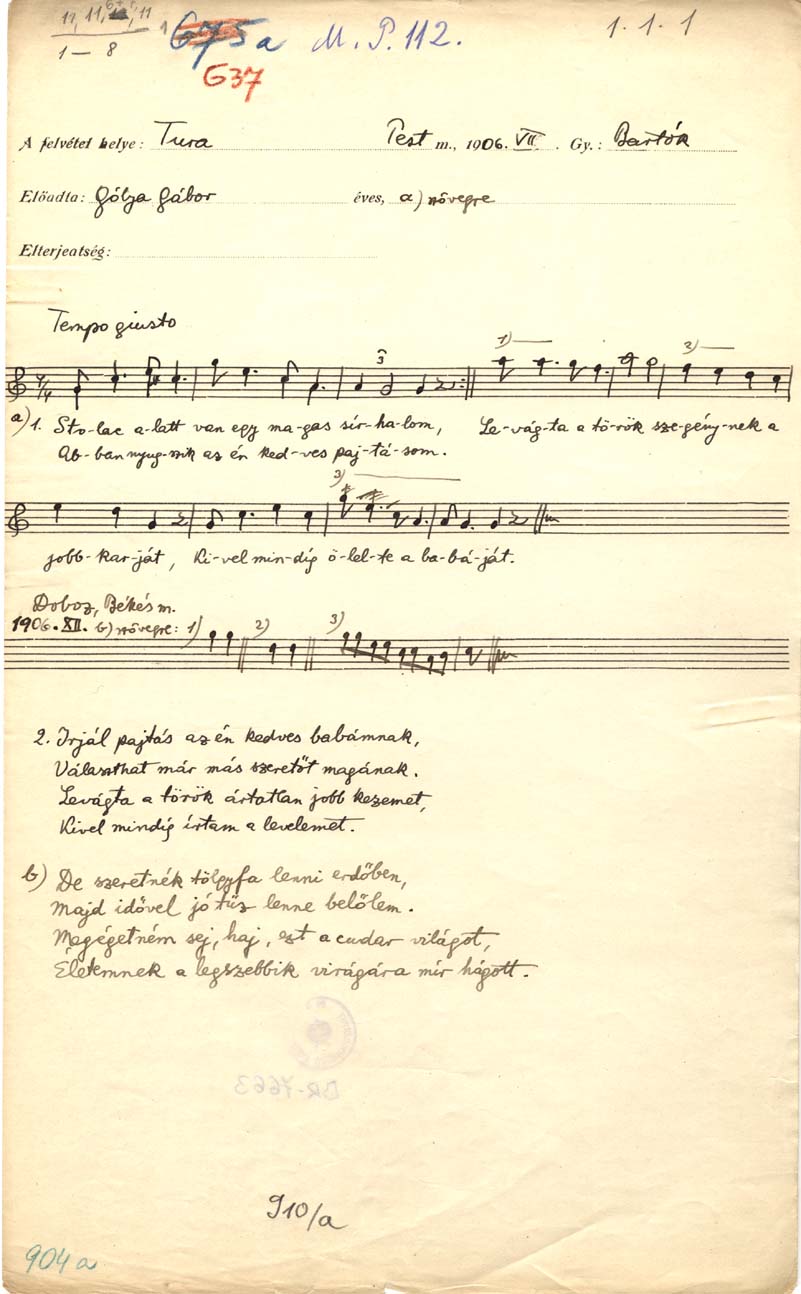 11, 11, 11
1 — 8
675 a M. P. 112.
1. 1. 1
637
A felvétel helye: Tura Pest m., 1906. VII. Gy.: Bartók
Előadta: Gólya Gábor éves, a) szövegre
Elterjedtség:
Tempo giusto
3
1)
2)
a) 1. Sto-lac a-latt van egy ma-gas sír-ha-lom, Le-vág-ta a tö-rök sze-gény-nek a
Ab-ban nyug-szik az én ked-ves paj-tá-som.
3)
jobb-kar-ját, Ki-vel min-díg ö-lel-te a ba-bá-ját.
Doboz, Békés m.
1906. XII. b) szövegre: 1) 2) 3)
2. Irjál pajtás az én kedves babámnak,
Választhat már más szeretőt magának.
Levágta a török ártatlan jobb kezemet,
Kivel mindig írtam a levelemet.
b) De szeretnék tölgyfa lenni erdőben,
Majd idővel jó tűz lenne belőlem.
Megégetném sej, haj, ezt a cudar világot,
Életemnek a legszebbik virágára mír hágott.
BR-7663
910/a
904 a